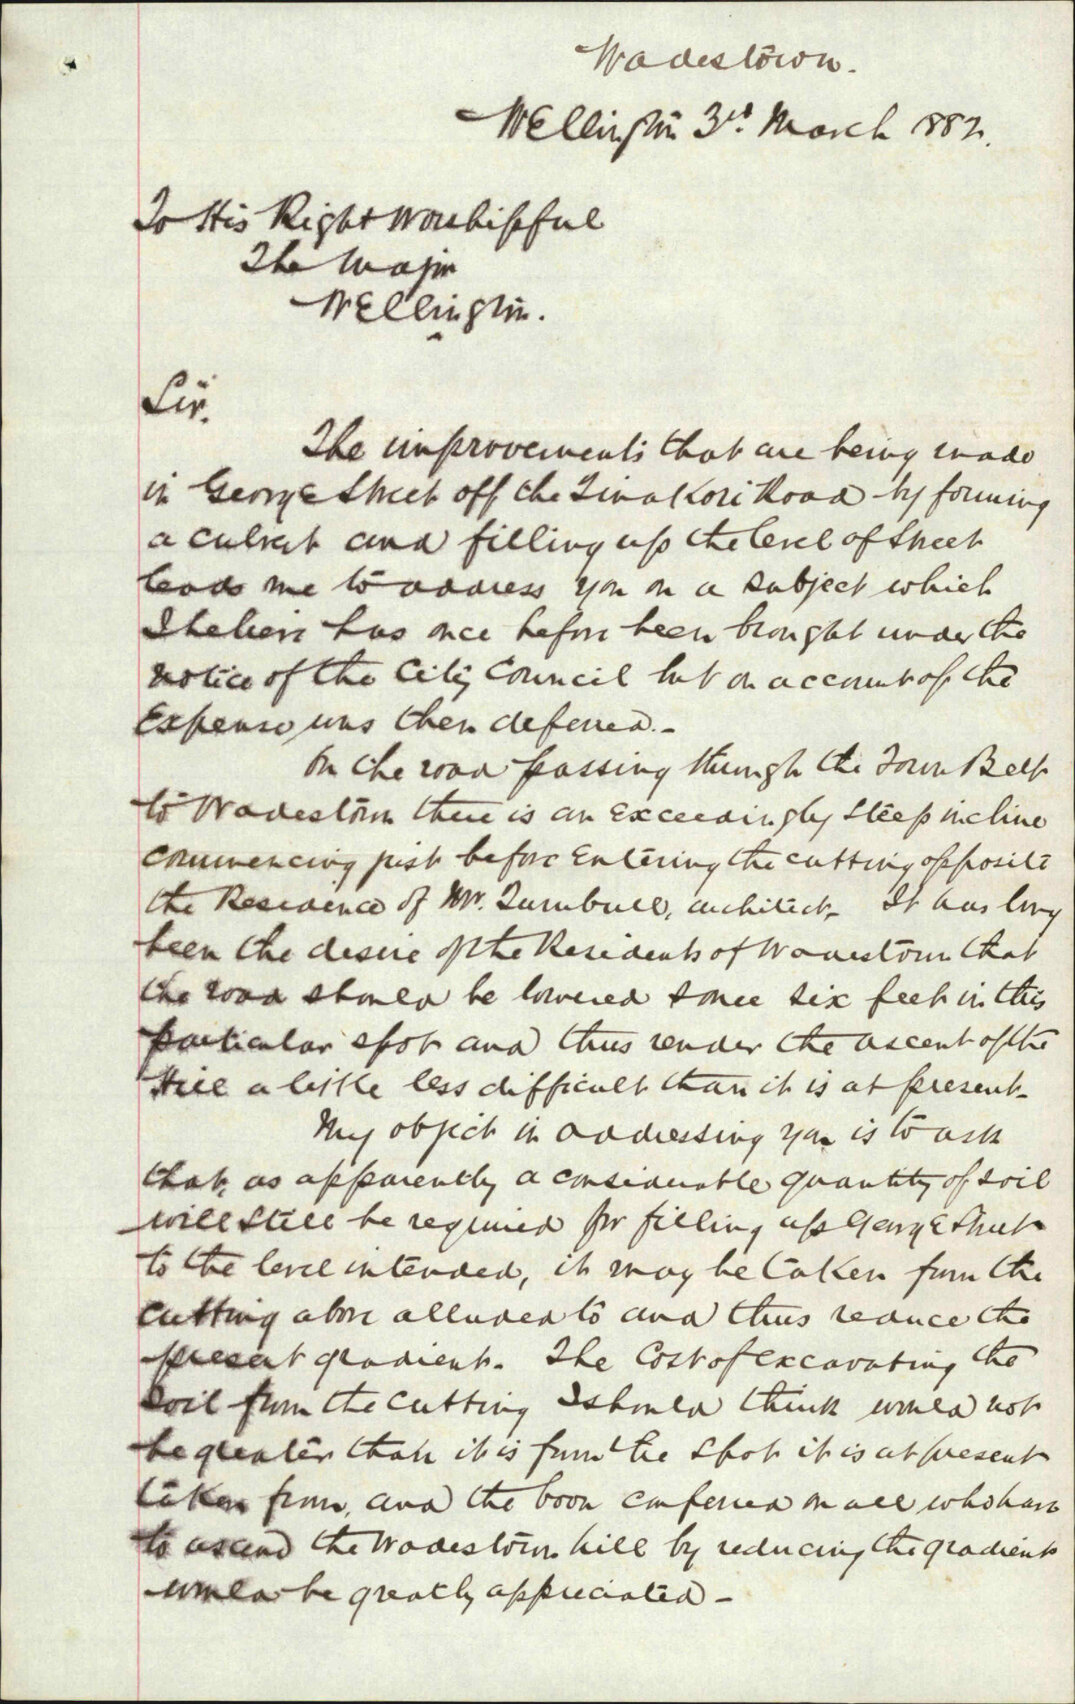 Wadestown.
Wellington 3rd. March 1882.
To His Right Worshipful
The Major
Wellington.
Sir.
The improvements that are being made
in George Street off the Tinakori Road by forming
a culvert and filling up the level of Street
leads me to address you on a subject which
I believe has once before been brought under the
notice of the City Council but on account of the
Expense was then deferred.-
On the road passing through the Town Belt
to Wadestown there is an exceedingly steep incline
commencing just before Entering the cutting opposite
the Residence of Mr. Turnbull, architect. It has long
been the desire of the Residents of Wadestown that
the road should be lowered some six feet in this
particular spot and thus render the ascent of the
Hill a little less difficult than it is at present-
My object in addressing you is to ask
that, as apparently a considerable quantity of soil
will still be required for filling up George Street
to the level intended, it may be taken from the
cutting above alluded to and thus reduce the
present gradient. The Cost of excavating the
soil from the cutting I should think would not
be greater than it is from the spot it is at present
taken from, and the boon conferred on all who have
to ascend the Wadestown hill by reducing the gradient
would be greatly appreciated -